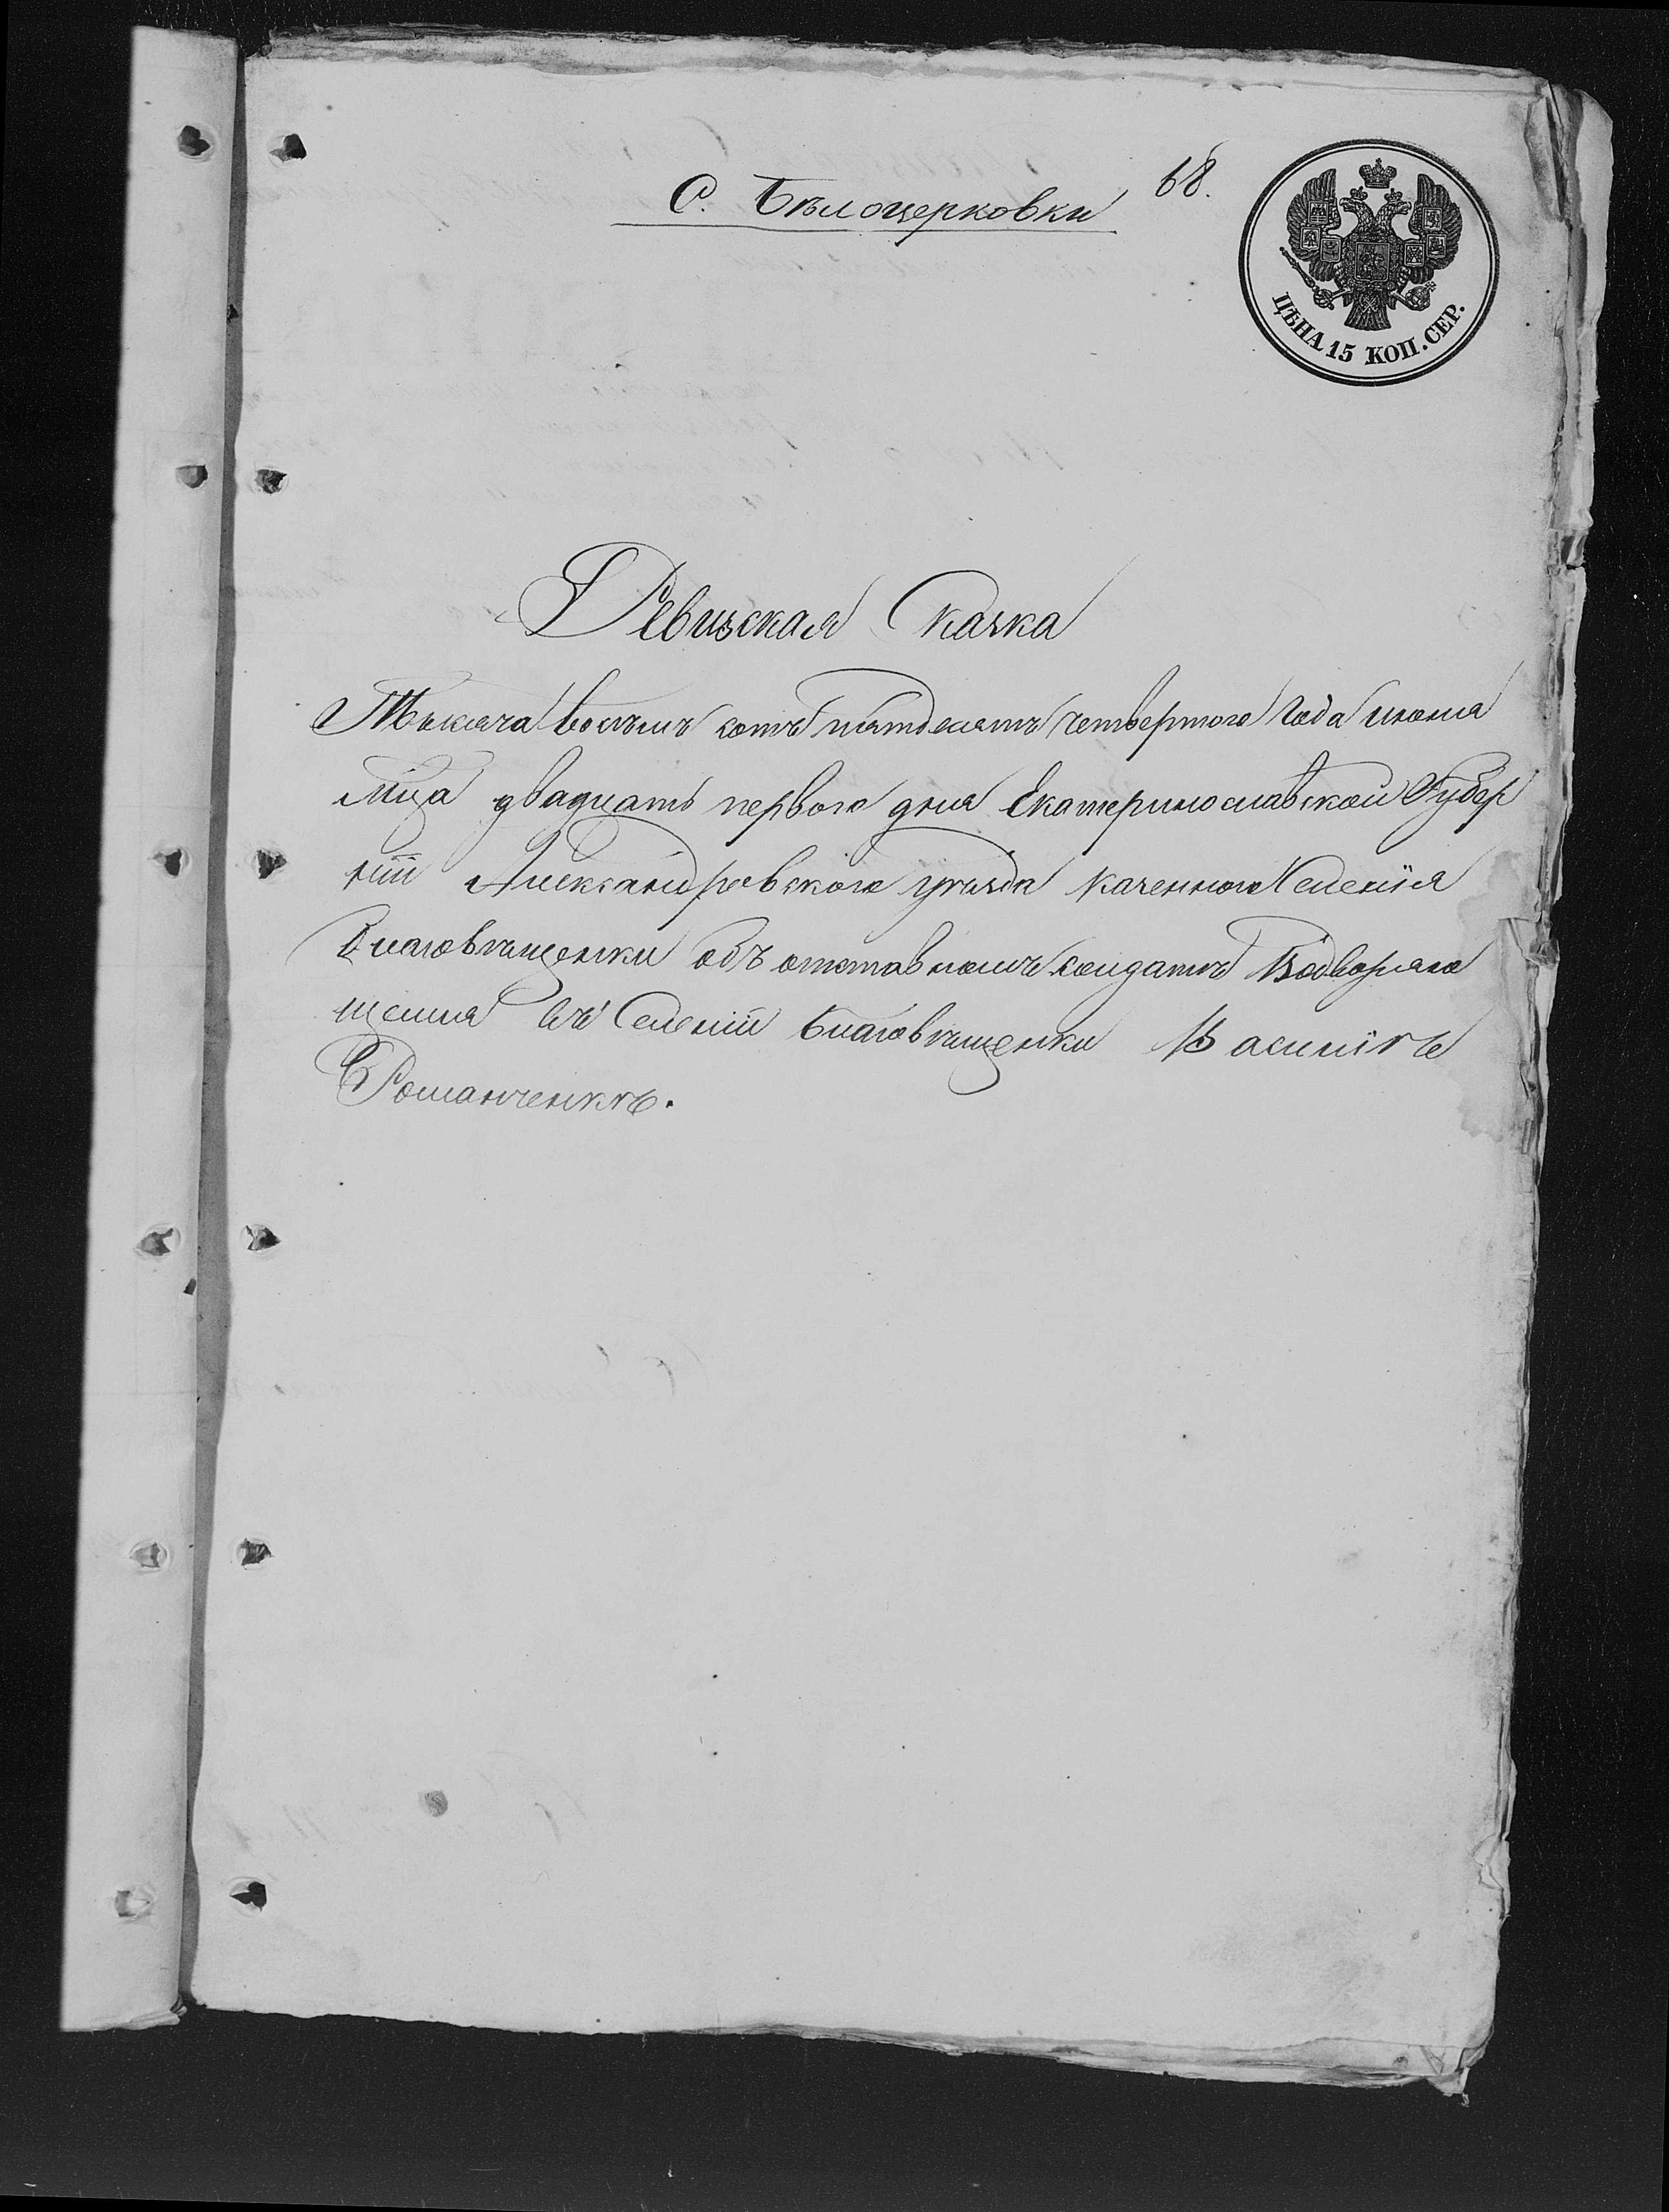 С. Бѣлоцерковки
68.
ЦѢНА 15 КОП. СЕР.
Ревизская Сказка
Тысяча восемъ сотъ пятдесятъ четвертого года июня
мца двадцать первого дня Екатеринославской Губер
нїи Александровского уѣзда казенного Селенїя
Благовѣщенки объ отставномъ солдатѣ Водворяю
щемся въ Селенїи Благовѣщенки Василїѣ
Романченкѣ.